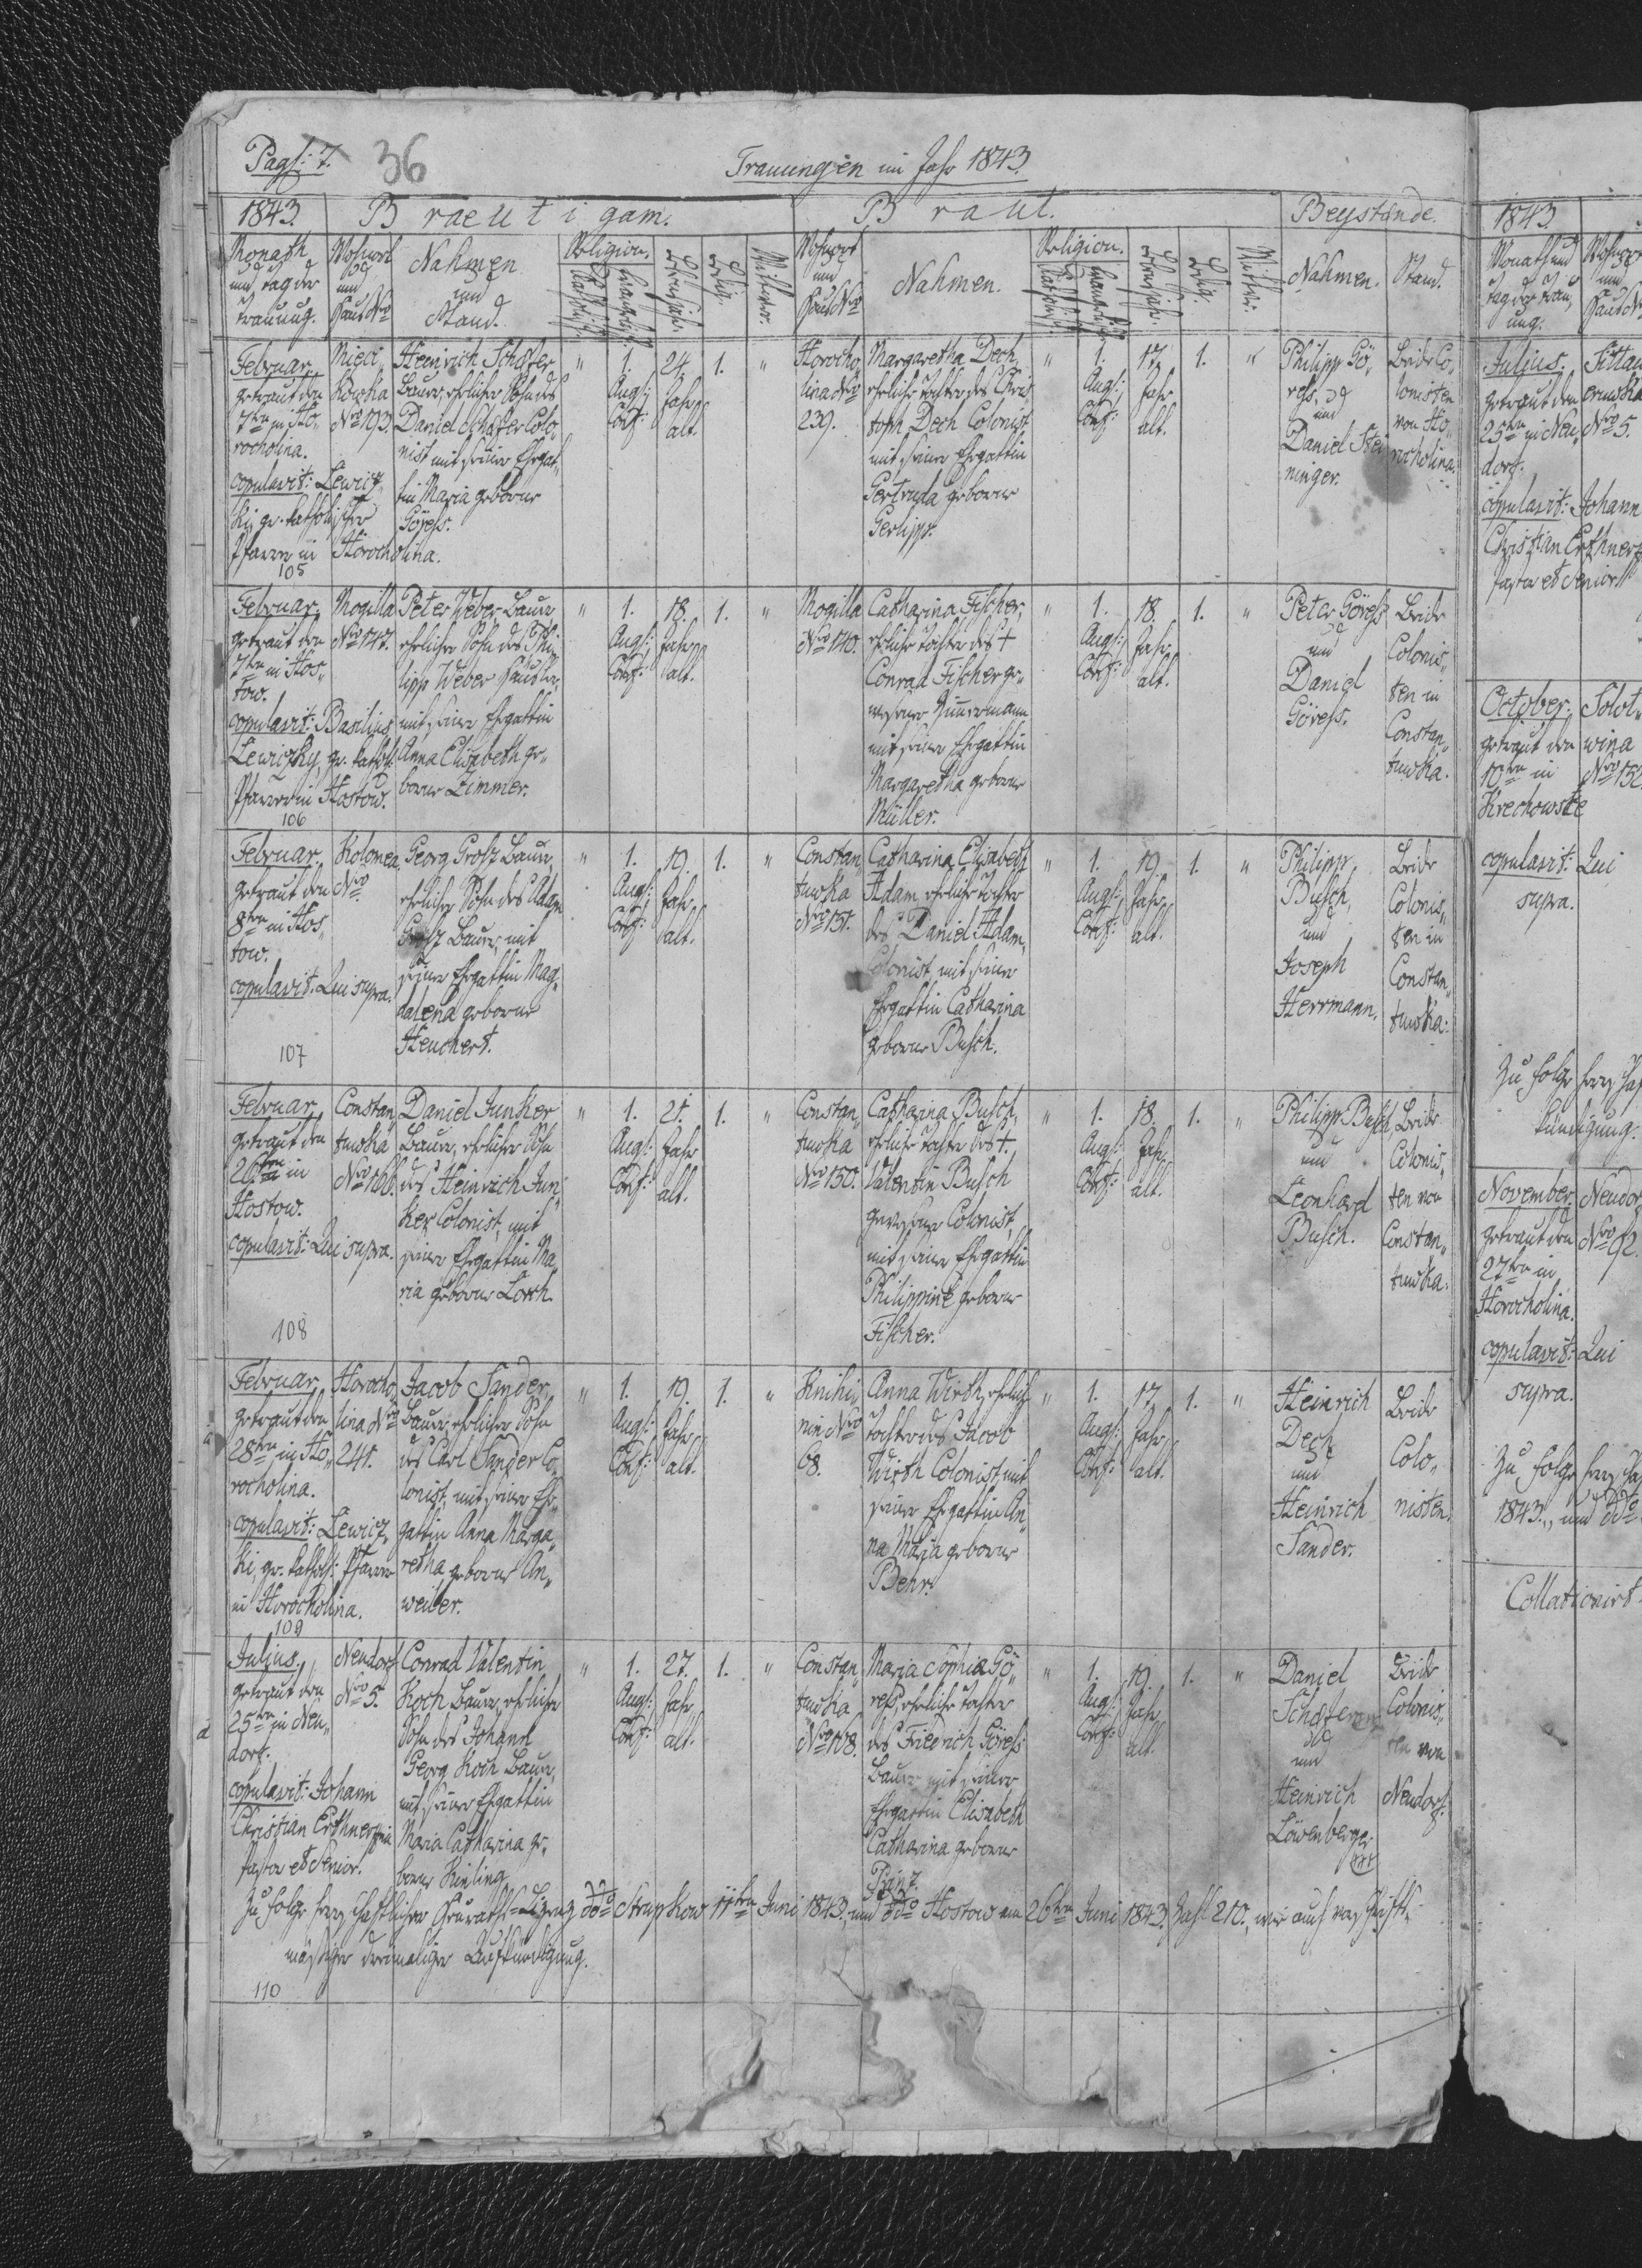 Pag: 7. 36
Trauungen im Jahr 1843.
1843. Braeutigam. Braut. Beystände.
Monath und Tag der Trauung. Wohnort und Haus Nro Nahmen und Stand. Religion. Katholisch. Evangelisch. Lebensjahr. Ledig. Wittwer. Wohnort und Haus Nro Nahmen. Religion. Katholisch. Evangelisch. Lebensjahr. Ledig. Wittwe. Nahmen. Stand.
Februar.
getraut den
7ten in Ho„
rocholina.
copulavit: Lewicz„
ki, gr. katholischer
Pfarrer in Horocholina.
105
Mieci„
kowka
Nro 193.
Heinrich Schäfer
Bauer, ehelicher Sohn des
Daniel Schäfer Colo„
nist mit seiner Ehegat„
tin Maria geborne
Göress.
" 1. 24. 1. "
Augs: Jahr
Conf: alt.
Horocho„
lina Nro
239.
Margaretha Dech,
eheliche Tochter des Chris„
toph Dech Colonist
mit seiner Ehegattin
Gertruda geborne
Gerlipp.
" 1. 17. 1. "
Augs: Jahr
Conf: alt.
Philipp Gö„
ress,
und
Daniel Stei„
ninger.
Beide Co„
lonisten
von Ho„
rocholina.
Februar.
getraut den
7ten in Hos„
tow.
copulavit: Basilius
Lewiczky, gr. kathol:
Pfarrer in Hostow.
106
Mogilla
Nro 147.
Peter Weber Bauer
ehelicher Sohn des Phi„
lipp Weber Häusler,
mit seiner Ehegattin
Anna Elisabeth ge„
borne Zimmer.
" 1. 18. 1. "
Augs: Jahr
Conf: alt.
Mogilla
Nro 140.
Catharina Fischer,
eheliche Tochter des †
Conrad Fischer ge„
wesener Zimmermann
mit seiner Ehegattin
Margaretha geborne
Müller.
" 1. 18. 1. "
Augs: Jahr
Conf: alt.
Peter Göress
und
Daniel
Göress.
Beide
Colonis„
ten in
Constan„
tuwka.
Februar.
getraut den
8ten in Hos„
tow.
copulavit: Qui supra.
107
Kolomea.
Nro
Georg Grosz Bauer,
ehelicher Sohn des Adam
Grosz Bauer, mit
seiner Ehegattin Mag„
dalena geborne
Heuchert.
" 1. 19. 1. "
Augs: Jahr
Conf: alt.
Constan„
tuwka
Nro 151.
Catharina Elisabeth
Adam, eheliche Tochter
des Daniel Adam,
Colonist, mit seiner
Ehegattin Catharina
geborne Busch.
" 1. 19. 1. "
Augs: Jahr
Conf: alt.
Philipp
Busch,
und
Joseph
Herrmann.
Beide
Colonis„
ten in
Constan„
tuwka.
Februar
getraut den
26ten in
Hostow.
copulavit: Qui supra.
108
Constan„
tuwka
Nro 166.
Daniel Junker
Bauer, ehelicher Sohn
des Heinrich Jun„
ker Colonist, mit
seiner Ehegattin Ma„
ria geborne Lorch.
" 1. 21. 1. "
Augs: Jahr
Conf: alt.
Constan„
tuwka
Nro 150.
Catharina Busch,
eheliche Tochter des †
Valentin Busch
gewesener Colonist,
mit seiner Ehegattin
Philippine geborne
Fischer.
" 1. 18. 1. "
Augs: Jahr
Conf: alt.
Philipp Busch
und
Leonhard
Busch.
Beide
Colonis„
ten von
Constan„
tuwka.
Februar
getraut den
28ten in Ho„
rocholina.
copulavit: Lewicz„
ki, gr. kathol: Pfarrer
in Horocholina.
109
Horocho„
lina Nro
241.
Jacob Sander,
Bauer, ehelicher Sohn
des Carl Sander Co„
lonist, mit seiner Ehe„
gattin Anna Marga„
retha geborne An„
weiler.
" 1. 19. 1. "
Augs: Jahr
Conf: alt.
Knihi„
nin Nro
68.
Anna Wirth, eheliche
Tochter des Jacob
Wirth Colonist, mit
seiner Ehegattin An„
na Maria geborne
Behr.
" 1. 17. 1. "
Augs: Jahr
Conf: alt.
Heinrich
Dech
und
Heinrich
Sander.
Beide
Colo„
nisten.
Julius.
getraut den
25ten in Neu„
dorf.
copulavit: Johann
Christian Erthner
Pastor et Senior.
Neudorf
Nro 5.
Conrad Valentin
Koch Bauer, ehelicher
Sohn des Johann
Georg Koch Bauer,
mit seiner Ehegattin
Maria Catharina ge„
borne Kisling
" 1. 27. 1. "
Augs: Jahr
Conf: alt.
Constan„
tuwka
Nro 108.
Maria Sophia Gö„
ress, eheliche Tochter
des Friedrich Göress
Bauer mit seiner
Ehegattin Elisabeth
Catharina geborne
Prinz.
" 1. 19. 1. "
Augs: Jahr
Conf: alt.
Daniel
Schäfer
und
Heinrich
Löwenberger
Beide
Colonis„
ten von
Neudorf.
Zu folge herrschaftlicher Heuraths-Lizenz ddo Strupkow 11ten Juni 1843. und ddo Hostow am 26ten Juni 1843. Zahl 210. wie auch vorschrift„
mässiger dreimaliger Aufkündigung.
110
1843.
Monath und Tag der Trau„ ung. Wohnort und Haus Nro
Julius.
getraut den
25ten in Neu„ Nro 5.
dorf.
copulavit: Johann
Christian Erthner
Pastor et Senior.
October. Solot„
getraut den wina
10ten in Nro 152.
Krechowske
copulavit: Qui
supra.
Zu folge
kündigung.
November. Neudorf
getraut den
27ten in
Horocholina.
copulavit: Qui
supra.
Zu folge
1843., und ddo
Collationirt